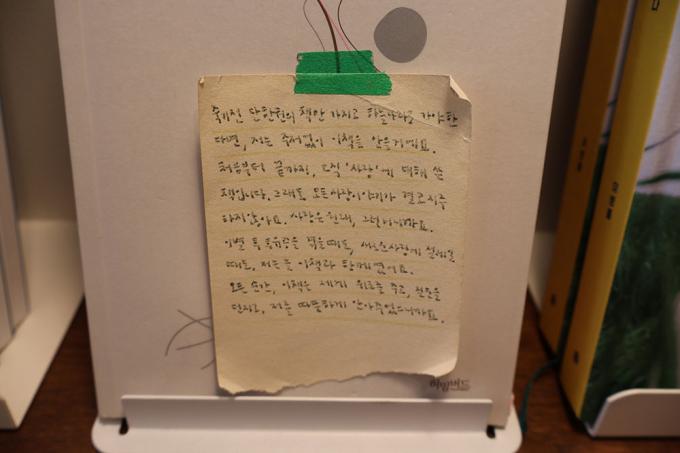 죽기전 단 한권의 책만 가지고 하늘나라로 가야한
다면, 저는 주저없이 이책을 안을거예요.
처음부터 끝까지, 오직 '사랑'에 대해 쓴
책입니다. 그래도 모든 사랑이야기가 결코 지루
하지않아요. 사랑은 원래, 그러니까요.
이별 후 을 때도, 새로운사랑에 설레일
때도, 저는 늘 이책과 함께였어요.
모든 순간, 이책은 제게 위로를 주고, 질문을
던지고, 저를 따뜻하게 안아주었으니까요.
허밍버드